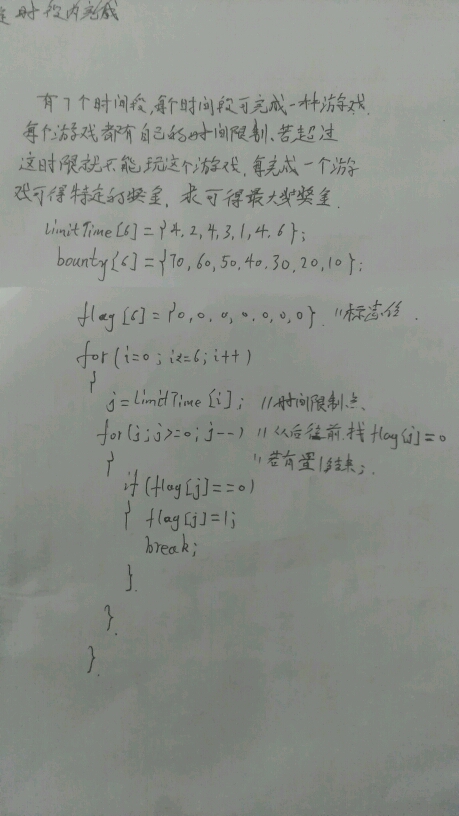 时段内完成
有7个时间段,每个时间段可完成一种游戏.
每个游戏都有自己的时间限制、若超过
这时限就不能玩这个游戏,每完成一个游
戏可得特定的奖金,求可得最大奖金.
limitTime[6]={4,2,4,3,1,4,6};
bounty[6]={70,60,50,40,30,20,10};
flag[6]={0,0,0,0,0,0,0}. //标志位.
for(i=0;i<=6;i++)
{
j=limitTime[i]; //时间限制点、
for(j;j>=0;j--) //从后往前.找flag[j]=0
{ //若有置1结束;.
if(flag[j]==0)
{ flag[j]=1;
break;
}.
}.
}.